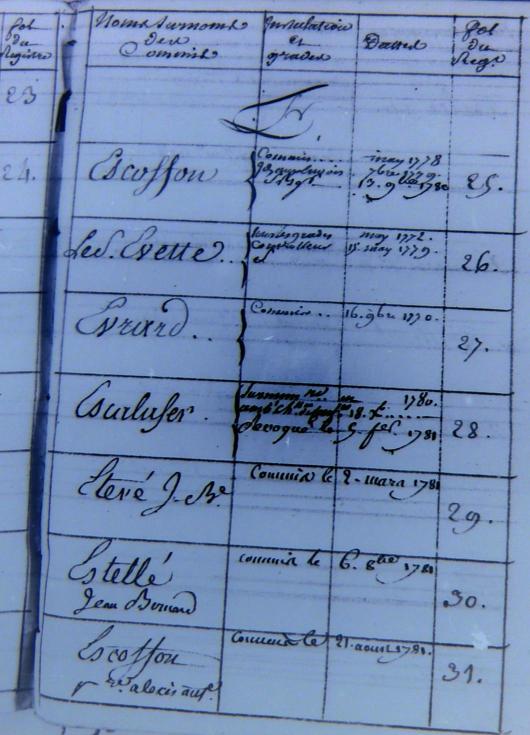 fol
du
Registre
Noms Surnoms
des
Commis
Installation
et
grades
Dattes
fol
du
Regre
23
24.
Escoffon
Commis... may 1778
7bre 1779.
13. 9bre 1780
25.
Led. Evette..
may 1772.
Controlleur 15. may 1779.
26.
Evrard..
Commis.. 16. 9bre 1770.
27.
Escaluser.
Surnumre 1780.
18. Xe.....
revoqué le 5. fer. 1781
28.
Etevé J. Bte
Commis le 2. mars 1781
29.
Estellé
Jean Bernard
commis le 6. 8bre 1781
30.
Escoffon
alexis
Commis le 21. aout 1781.
31.